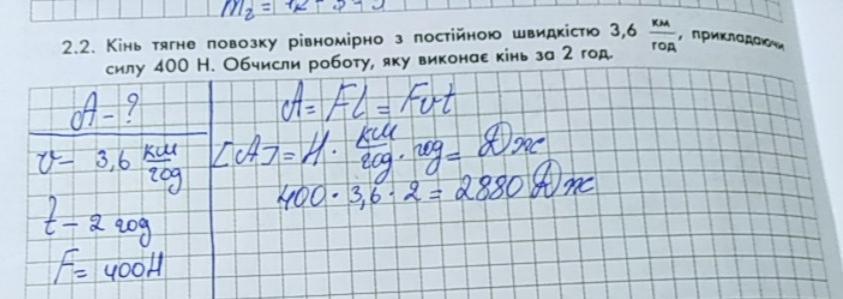 m₂ =
2.2. Кінь тягне повозку рівномірно з постійною швидкістю 3,6 км/год, прикладаючи
силу 400 Н. Обчисли роботу, яку виконає кінь за 2 год.
A - ?
A = Fl = Fvt
v - 3,6 км/год
[A] = Н · км/год · год = Дж
400 · 3,6 · 2 = 2880 Дж
t - 2 год
F = 400Н